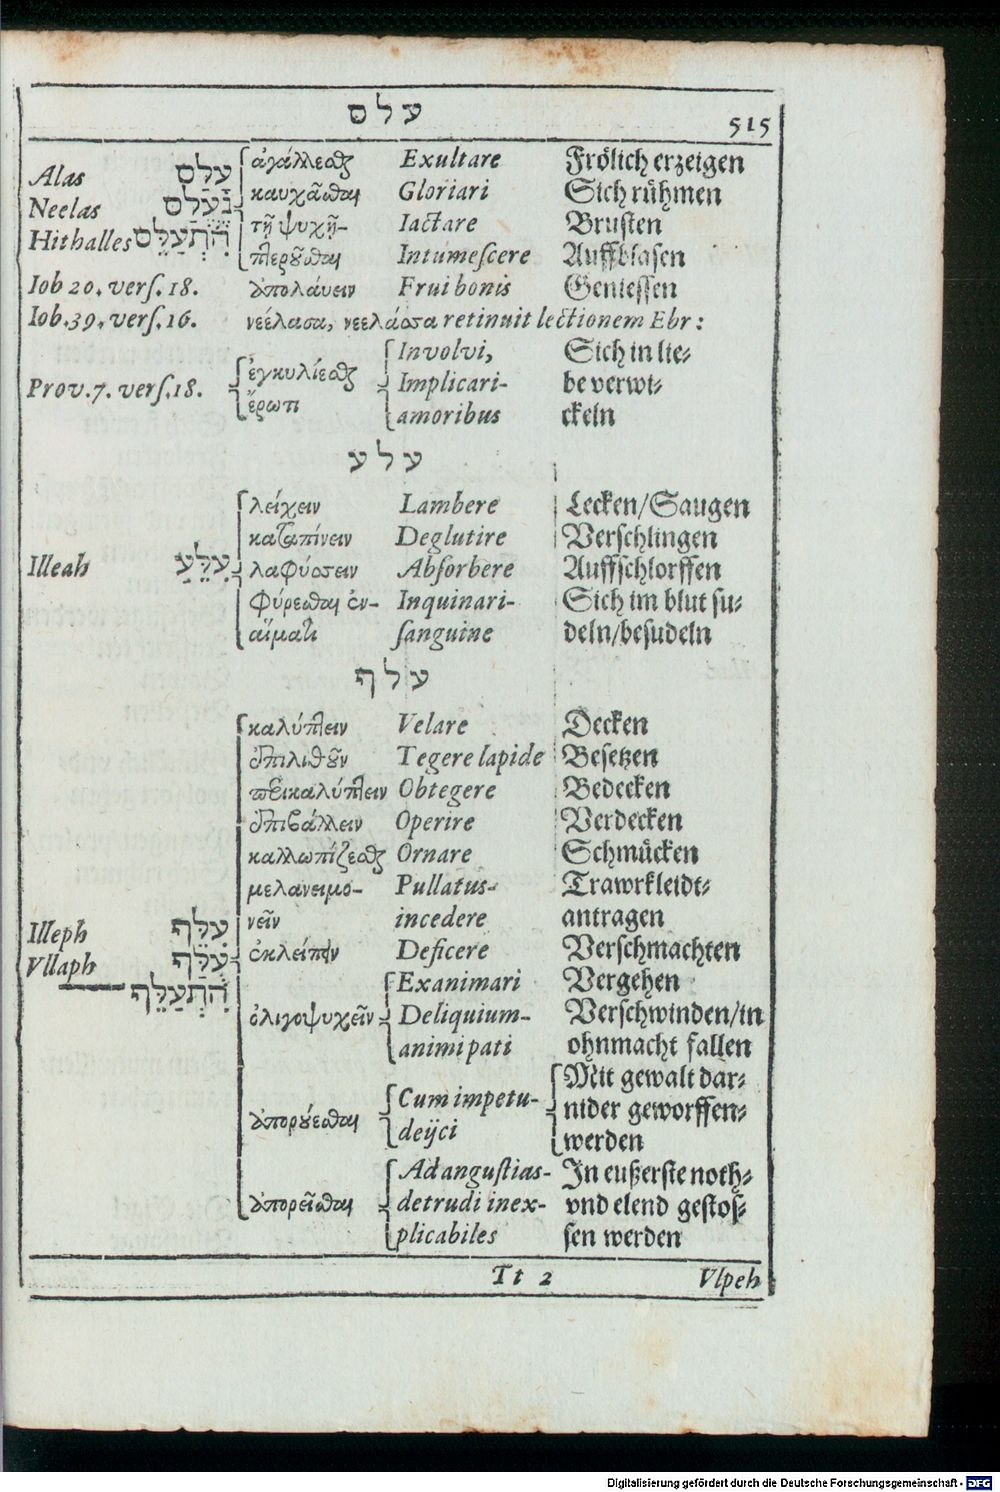 עלס
515
Alas עָלַס ἀγάλλεσθαι Exultare Frölich erzeigen
Neelas נֶעֱלַס καυχᾶσθαι Gloriari Sich rühmen
Hithalles הִתְעַלֵּס τῇ ψυχῇ- Iactare Brusten
πτερυοῦσθαι Intumeſcere Auffblasen
Iob 20. verſ. 18. ἀπολάυειν Frui bonis Geniessen
Iob. 39. verſ. 16. νεέλασα, νεελάσσα retinuit lectionem Ebr:
Involvi, Sich in lie-
Prov. 7. verſ. 18. ἐγκυλίεσθαι Implicari- be verwi-
ἔρωτι amoribus ckeln
עלע
λείχειν Lambere Lecken/Saugen
καταπίνειν Deglutire Verschlingen
Illeah עִלֵּעַ λαφύσσειν Abſorbere Auffschlorffen
φύρεσθαι ἐν- Inquinari- Sich im blut su-
αἵματι ſanguine deln/besudeln
עלף
καλύπτειν Velare Decken
ἐπιλιθοῦν Tegere lapide Besetzen
περικαλύπτειν Obtegere Bedecken
ἐπιβάλλειν Operire Verdecken
καλλωπίζεσθαι Ornare Schmücken
μελανειμο- Pullatus- Trawrkleidt-
Illeph עִלֵּף νεῖν incedere antragen
Vllaph עֻלַּף ἐκλείπειν Deficere Verschmachten
הִתְעַלֵּף Exanimari Vergehen
ὀλιγοψυχεῖν Deliquium- Verschwinden/in
animi pati ohnmacht fallen
Mit gewalt dar-
ἀπορύεσθαι Cum impetu- nider geworffen-
deijci werden
Ad anguſtias- In eußerste noth-
ἀπορεῖσθαι detrudi inex- vnd elend gestos-
plicabiles sen werden
Tt 2 Vlpeh
Digitalisierung gefördert durch die Deutsche Forschungsgemeinschaft - DFG